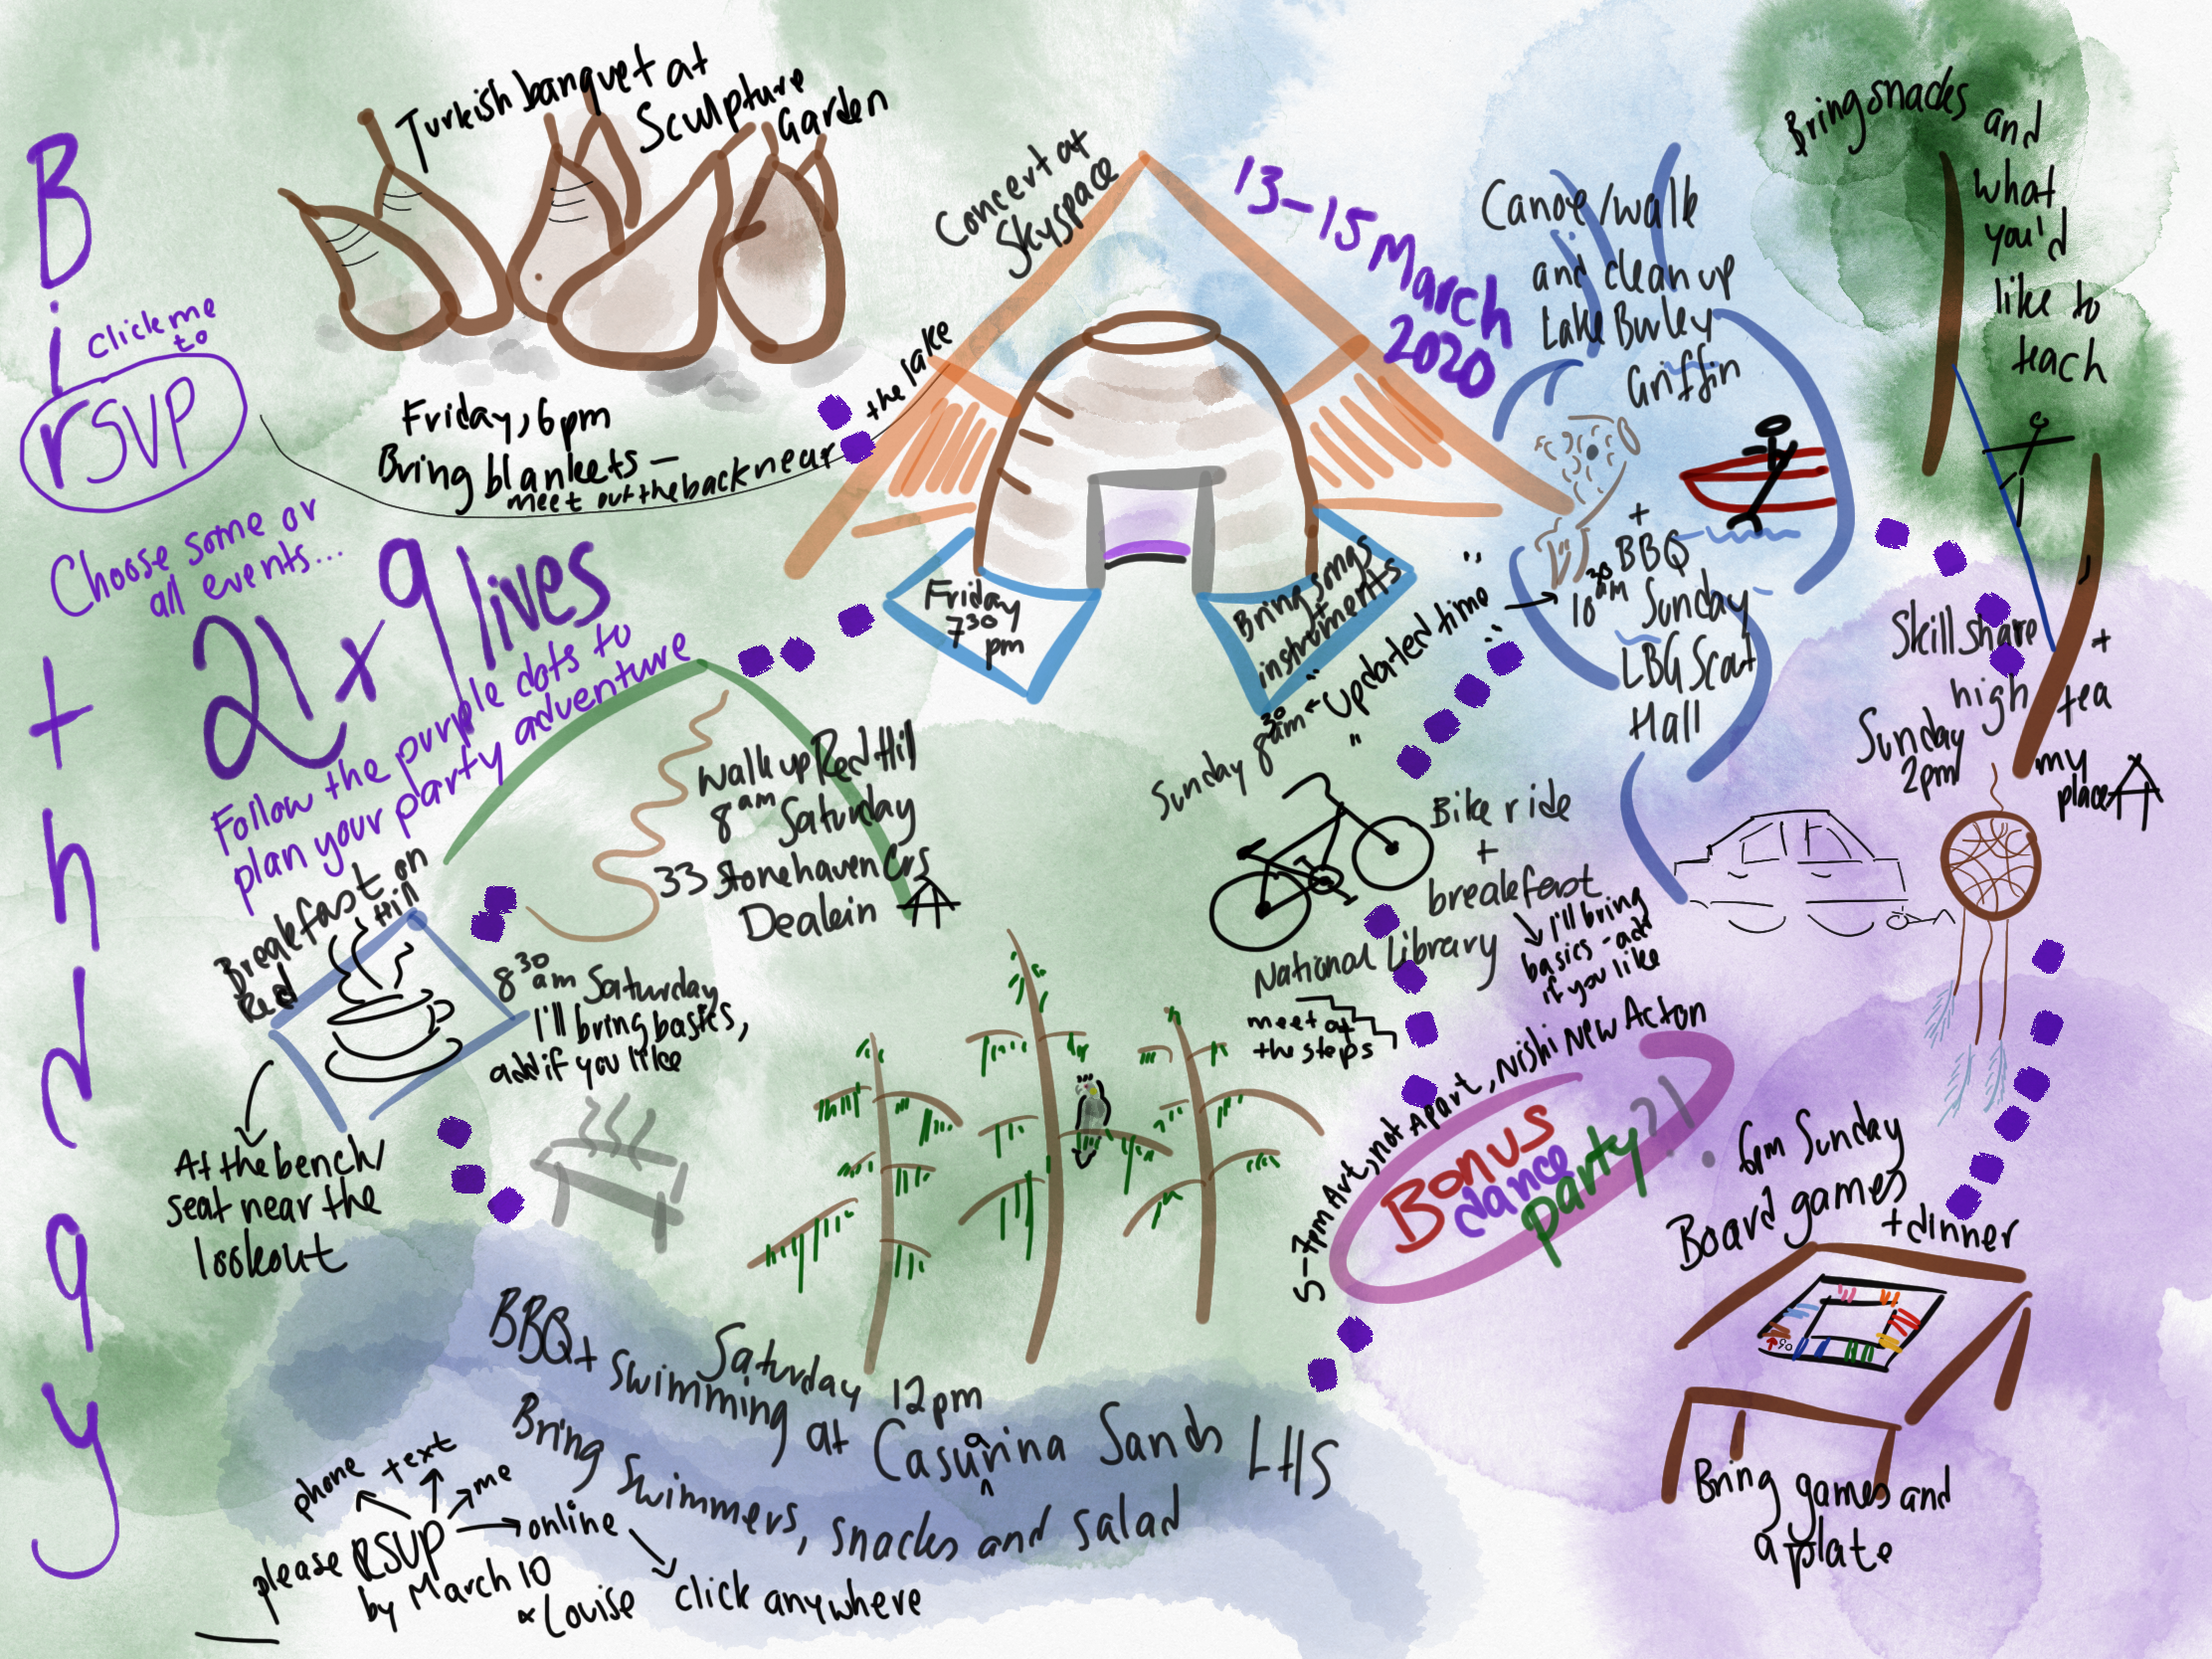 Birthday
click me
to
rSVP
Choose some or
all events...
21 x 9 lives
Follow the purple dots to
plan your party adventure
Turkish banquet at
Sculpture
Garden
Friday, 6pm
Bring blankets —
meet out the back near
the lake
Concert at
Skyspace
Friday
7 30
pm
Bring songs
+
instruments
13-15 March
2020
Walk up Red Hill
8 am Saturday
33 Stonehaven Crs
Deakin
Breakfast on
Red Hill
8 30 am Saturday
I'll bring basics,
add if you like
At the bench/
seat near the
lookout
Saturday 12pm
BBQ + swimming at Casuarina Sands LHS
Bring swimmers, snacks and salad
5-7pm Art, not Apart, Nishi New Acton
Bonus
dance
party?!
Sunday 8 30 am ← "updated time" → 10 30 am
Bike ride
+
breakfast
I'll bring
basics - add
if you like
National Library
meet at
the steps
Canoe/walk
and clean up
Lake Burley
Griffin
+
BBQ
Sunday
LBG Scout
Hall
Bring snacks and
what
you'd
like to
teach
Skillshare +
high tea
Sunday
2pm
my
place
6pm Sunday
Board games
+ dinner
Bring games and
a plate
please RSVP
by March 10
phone
text
me
online
click anywhere
Louise